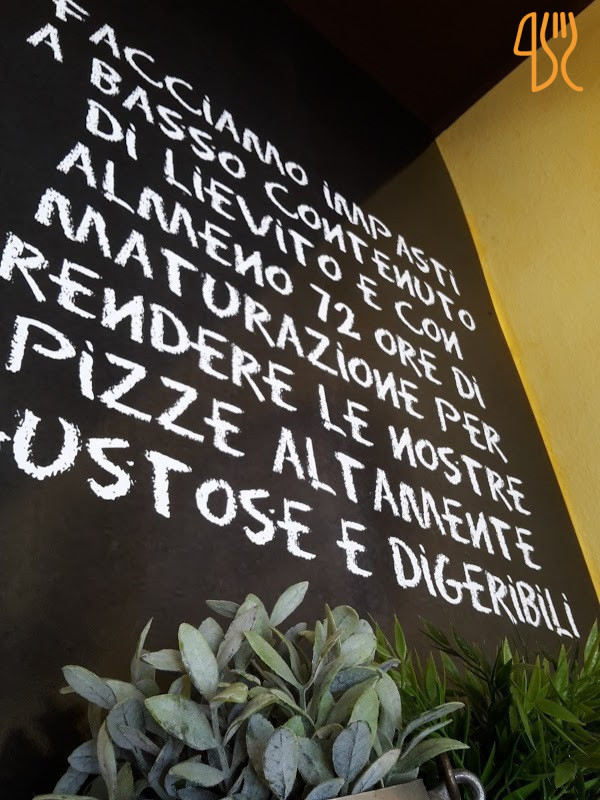 FACCIAMO IMPASTI
A BASSO CONTENUTO
DI LIEVITO E CON
ALMENO 72 ORE DI
MATURAZIONE PER
RENDERE LE NOSTRE
PIZZE ALTAMENTE
GUSTOSE E DIGERIBILI